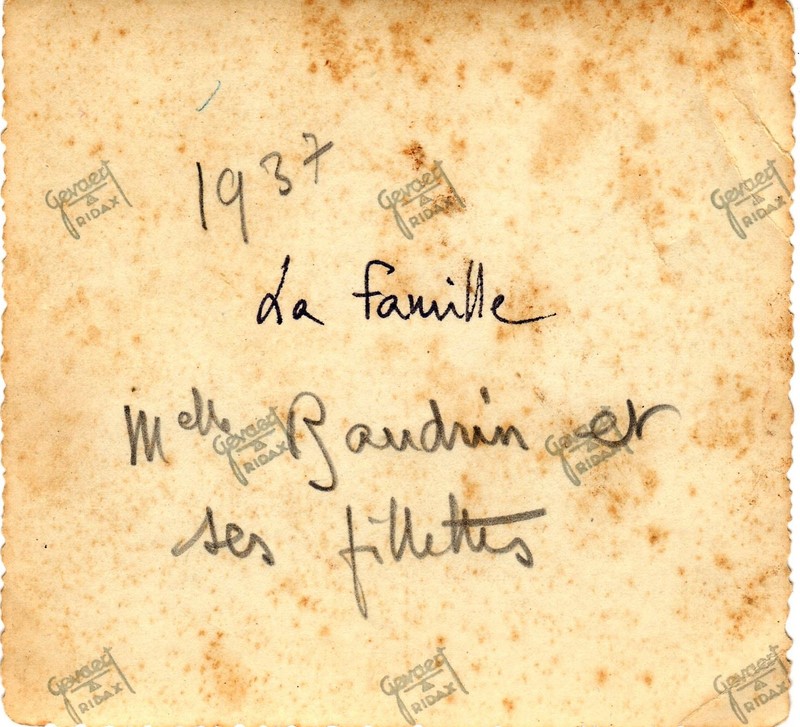 1937
La famille
Melle Baudrin et
ses fillettes
Gevaert RIDAX
Gevaert RIDAX
Gevaert RIDAX
Gevaert RIDAX
Gevaert RIDAX
Gevaert RIDAX
Gevaert RIDAX
Gevaert RIDAX